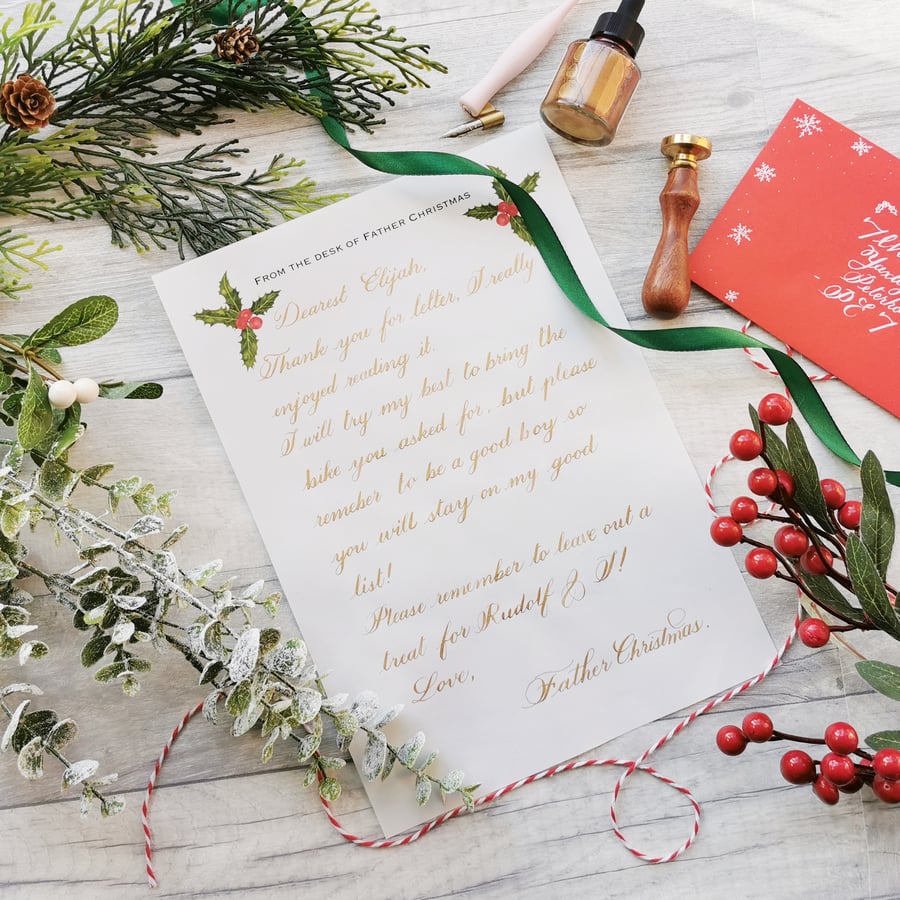 From the desk of Father Christmas
Dearest Elijah,
Thank you for letter, I really
enjoyed reading it.
I will try my best to bring the
bike you asked for, but please
remeber to be a good boy so
you will stay on my good
list!
Please remember to leave out a
treat for Rudolf & I!
Love,
Father Christmas.